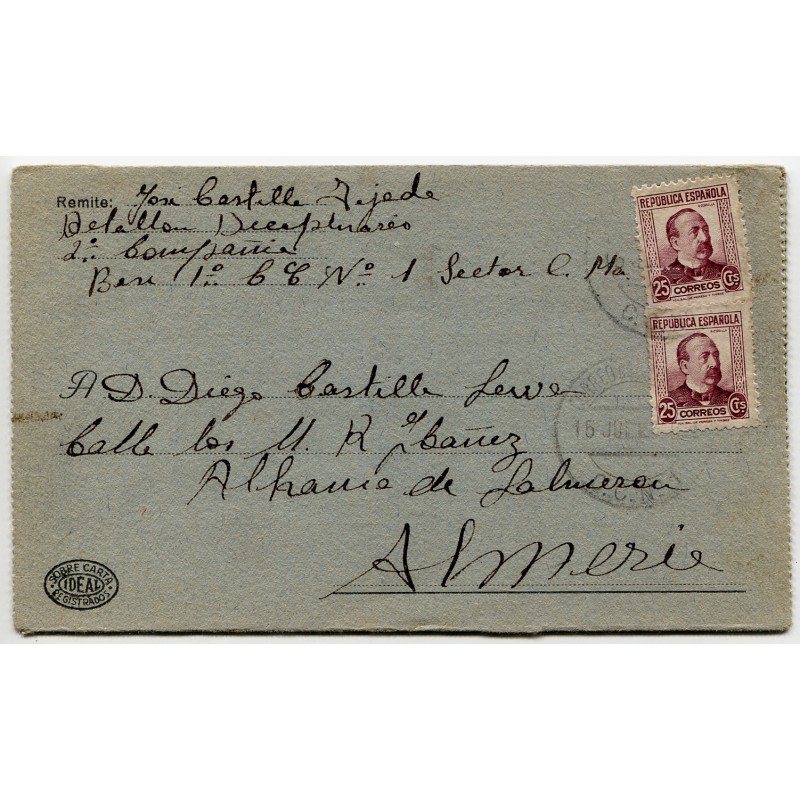 Remite: José Castille Tijada
Batallon Diceplinario
2ª Compania
Base 1ª C E Nº 1 Sector C. Ma.
REPUBLICA ESPAÑOLA
25 CORREOS Cts
REPUBLICA ESPAÑOLA
25 CORREOS Cts
15 JUL
A D. Diego Castille
Calle los M. R Ybañez
Alhama de Salmeron
Almeria
SOBRE CARTA
IDEAL
REGISTRADOS